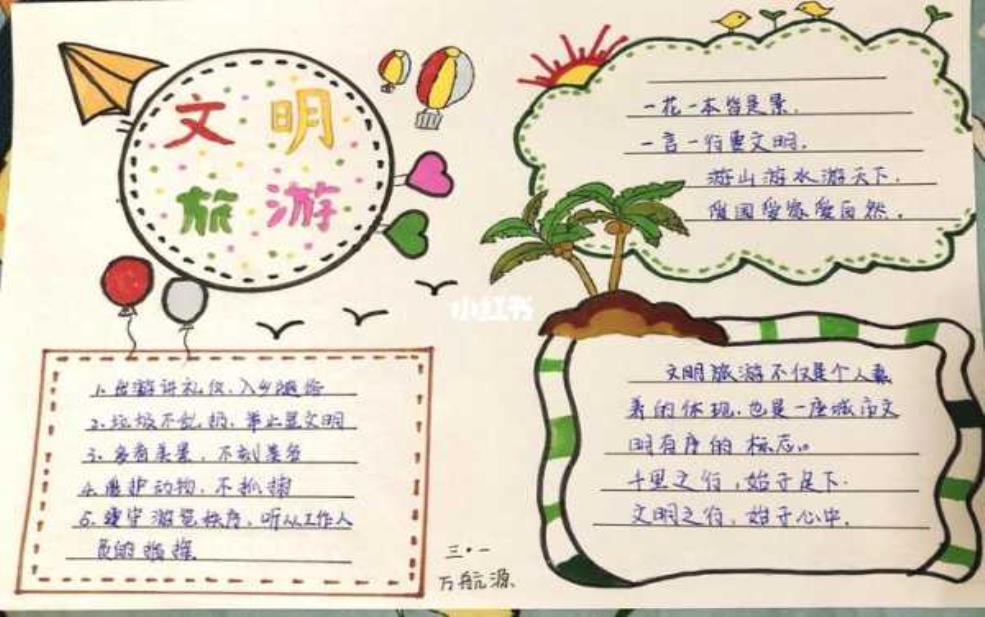 文明
旅游
一花一木皆是景.
一言一行要文明.
游山游水游天下.
爱国爱家爱自然.
小红书
1.出游讲礼仪、入乡随俗
2.垃圾不乱扔、举止显文明
3.多看美景,不刻美名
4.爱护动物,不抓捕
5.遵守游览秩序,听从工作人
员的指挥.
文明旅游不仅是个人素
养的体现.也是一座城市文
明有序的标志。
千里之行,始于足下.
文明之行,始于心中.
三·一
万航源